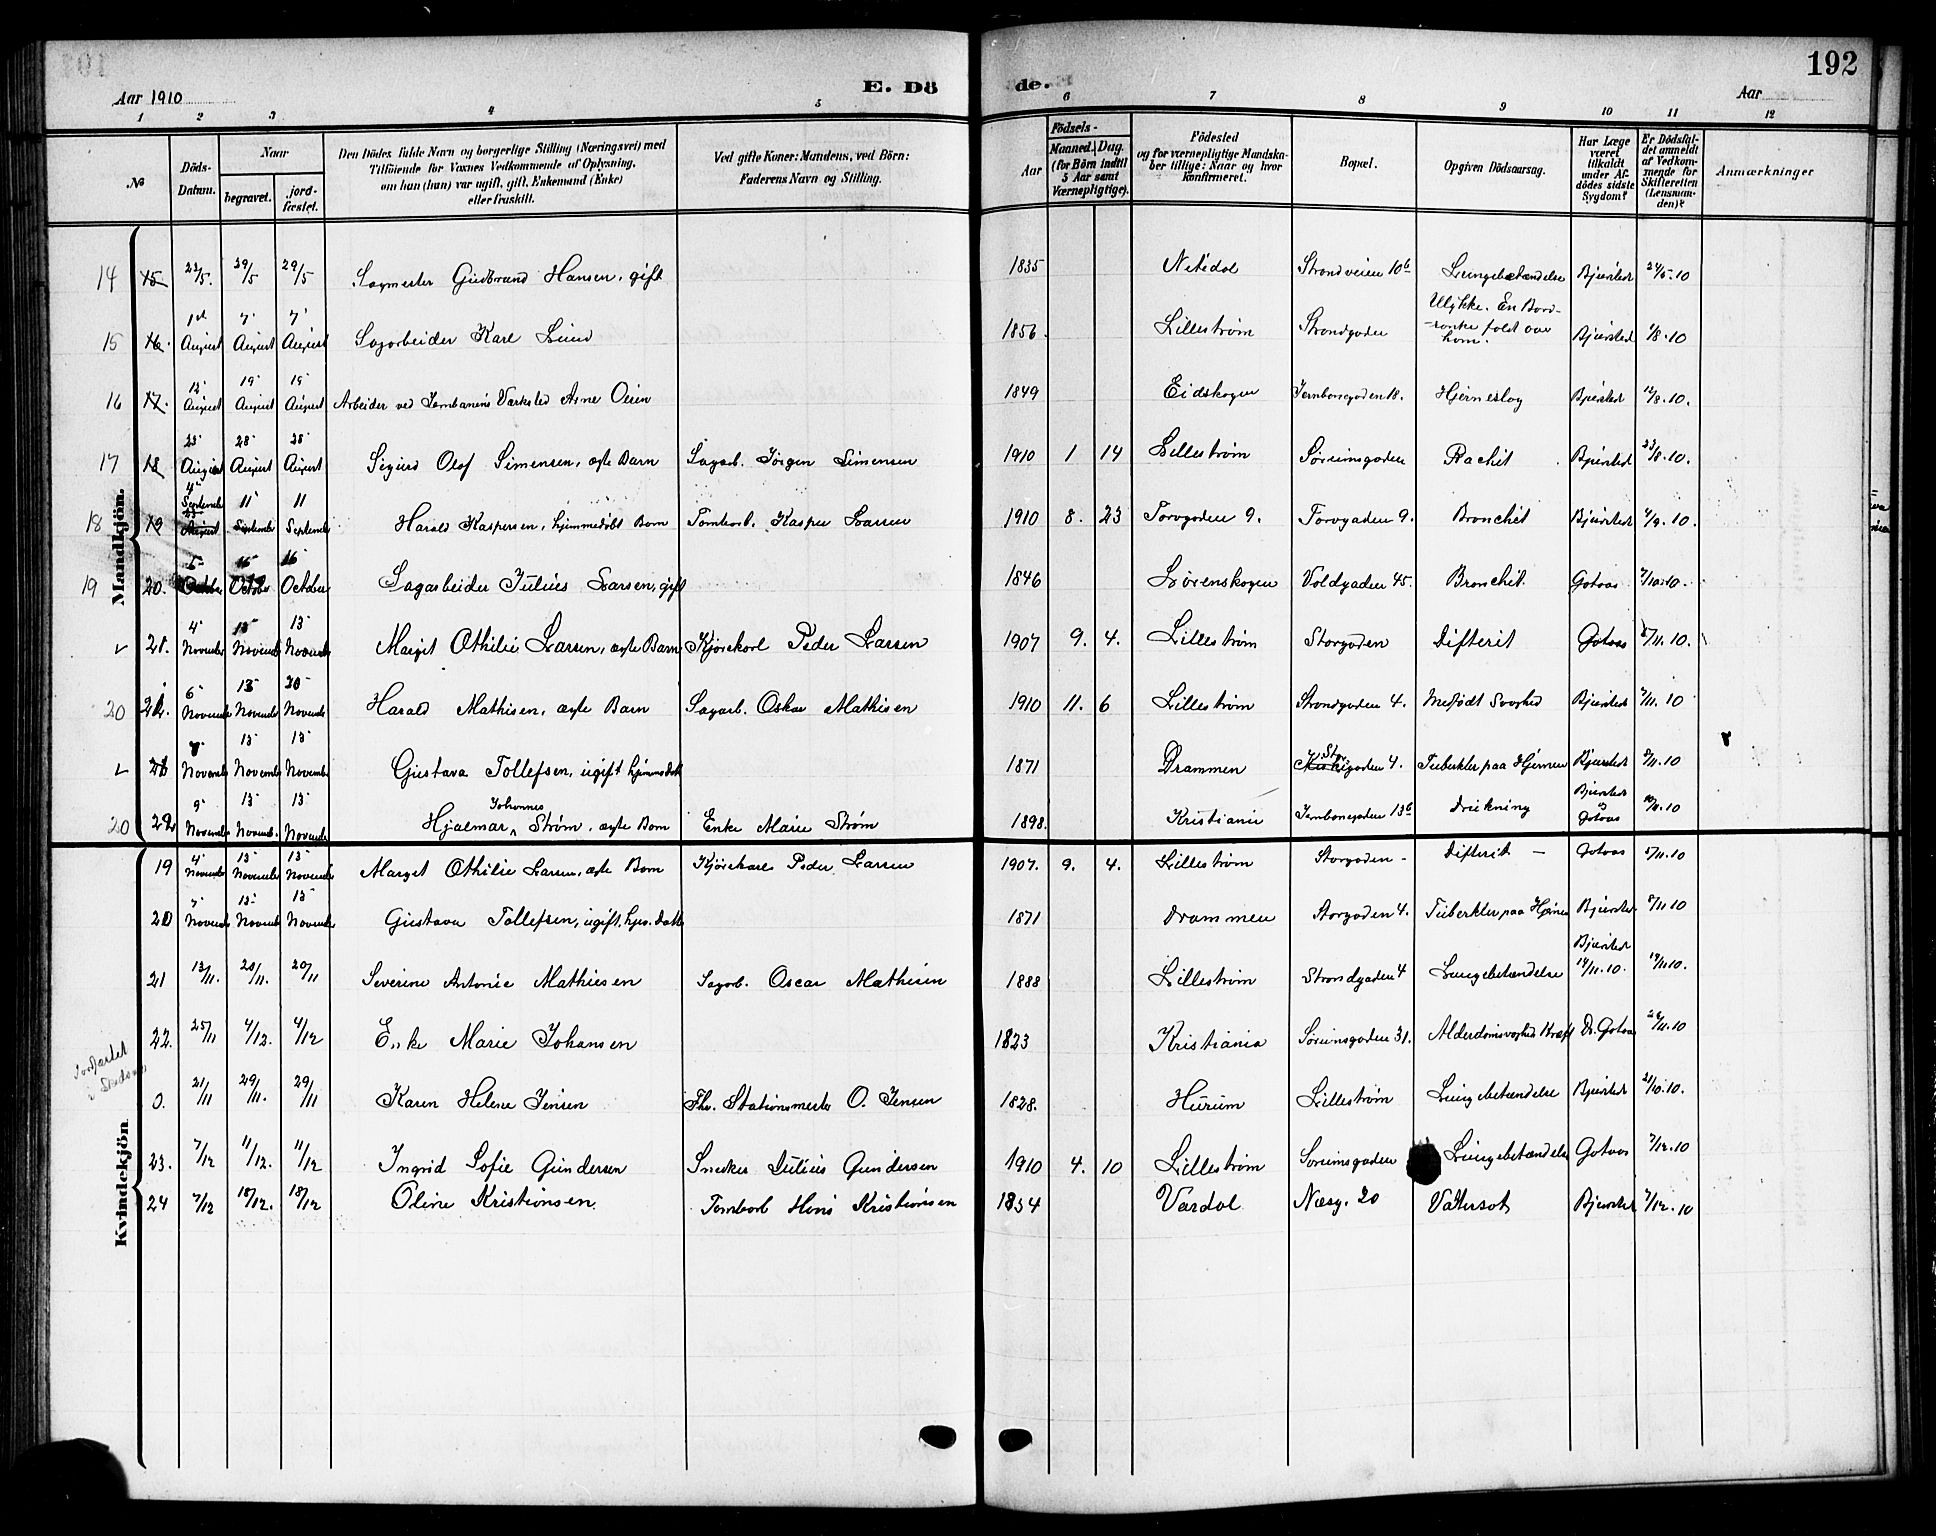 192
Aar 1910
E. Dö
de.
Aar
1 2 3 4 5 6 7 8 9 10 11 12
No
Döds-Datum.
Naar
begravet.
jordfæstet.
Den Dödes fulde Navn og borgerlige Stilling (Næringsvei) med Tilföiende for Voxnes Vedkommende af Oplysning, om han (hun) var ugift, gift, Enkemand (Enke) eller fraskilt.
Ved gifte Koner: Mandens, ved Börn: Faderens Navn og Stilling.
Aar
Födsels-
Maaned. Dag.
(for Börn indtil 5 Aar samt Værnepligtige).
Födested og for værnepligtige Mandskaber tillige: Naar og hvor konfirmeret.
Bopæl.
Opgiven Dödsaarsag.
Har Læge været tilkaldt under Afdödes sidste Sygdom?
Er Dödsfaldet anmeldt af Vedkommende for Skifteretten (Lensmanden)?
Anmærkninger
Mandkjön.
14 15 22/5. 29/5 29/5 Sagmester Gudbrand Hansen, gift 1835 Nitedal Strandveien 10b Lungebetændelse Bjursted 24/5.10
15 16. 1st August 7' August 7' August Sagarbeider Karl Lund 1856. Lillestrøm Strandgaden Ulykke. En Bordranke faldt over ham. Bjursted 1/8.10
16 17. 12' August 19' August 19' August Arbeider ved Jernbanens Værksted Arne Oien 1849 Eidskogen Jernbanegaden 18. Hjerneslag Bjursted 12/8.10.
17 18 23' August 28' August 28' August Sigurd Olaf Simensen, ægte Barn Sagarb. Jörgen Simensen 1910 1 14 Lillestrøm Sörumsgaden Rachit Bjursted 23/8.10.
18 19 4' September 23 August 11' September 11 September Harald Kaspersen, hjemmedøbt Barn Tomtearb. Kasper Larsen 1910 8. 23 Torvgaden 9. Torvgaden 9. Bronchit Bjursted 4/9.10.
19 20. 5' October 16' October 16 October Sagarbeider Julius Larsen, gift 1846 Lörenskogen Voldgaden 45. Bronchit Gotaas 7/10.10.
21. 4' November 13' November 13' November Margit Othilie Larsen, ægte Barn Kjörekarl Peder Larsen 1907 9. 4. Lillestrøm Storgaden Difterit Gotaas 5/11.10.
20 21. 6' November 13' November 20' November Harald Mathisen, ægte Barn Sagarb. Oskar Mathisen 1910 11. 6 Lillestrøm Strandgaden 4. Medfödt Svaghed Bjursted 7/11.10
7' November 13' November 13' November Gustava Tollefsen, ugift hjemmedatt 1871 Drammen Storgaden 4. Tuberkler paa Hjernen Bjursted 8/11.10
20 22 9' November 13' November 13' November Hjalmar Johannes Strøm, ægte Barn Enke Marie Strøm 1898. Kristiania Jernbanegaden 13b Drukning Bjursted og Gotaas 10/11.10
Kvindekjön
19 4' November 13' November 13' November Margit Othilie Larsen, ægte Barn Kjörekarl Peder Larsen 1907. 9. 4. Lillestrøm Storgaden - Difterit - Gotaas 5/11.10
20 7' November 13' November 13' November Gustava Tollefsen, ugift, hjem. datt 1871 Drammen Storgaden 4. Tuberkler paa Hjernen Bjursted 8/11.10
21 13/11. 20/11. 20/11 Severine Antonie Mathiesen Sagarb. Oscar Mathisen 1888 Lillestrøm Strandgaden 4 Lungebetændelse Bjursted 14/11.10. 14/11.10.
22. 25/11 4/12. 4/12 Enke Marie Johansen 1823 Kristiania Sörumsgaden 31. Alderdomssvaghed Kræft Dr. Gotaas 26/11.10
Jordfæstet
0. 21/11 29/11. 29/11 Karen Helene Jensen Fhv. Stationsmester O. Jensen 1828. Hurum Lillestrøm Lungebetændelse Bjursted 21/10.10.
23. 7/12 11/12. 11/12 Ingrid Sofie Gundersen Snedker Julius Gundersen 1910 4. 10 Lillestrøm Sorumsgaden Lungebetændelse Gotaas 7/12.10
24 7/12 18/12. 18/12 Oline Kristiansen. Tomtearb Hans Kristiansen 1854 Vardal Næsg. 20 Vattersot Bjursted 7/12.10